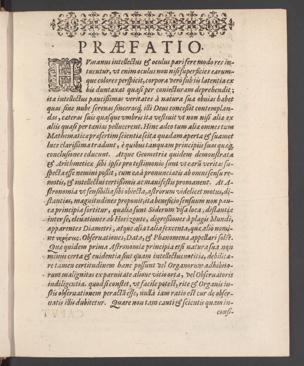 PRÆFATIO.
HVmanus intellectus & oculus pari fere modo res in-
tuentur, vt enim oculus non nisi superficies earum-
que colores perspicit, corpora verò sub iis latentia ex
his duntaxat quasi per coniecturam deprehendit;
ita intellectus paucissimas veritates à natura sua obuias habet
quas sine nube serenas sinceraq́; illi Deus concessit contemplan-
das, cæteras suis quasque vmbris ita vestiuit vt non nisi alia ex
aliis quasi per tenias pellucerent. Hinc adeo tum alia omnes tum
Mathematicæ præsertim scientiæ quædam aperta & suamet
luce clarissima tradunt, è quibus tanquam principiis suas quæq́;
conclusiones educunt. Atque Geometria quidem demonstrata
& Arithmetica sibi ipsæ pro testimonio sunt vt earũ veritas su-
specta esse nemini possit, cum ea à pronunciatis ab omni sensu re-
motis, & intellectui certissimis acmanifestis promanent. At A-
stronomia vt sensibilia sibi obiecta, astrorum videlicet motus, di-
stantias, magnitudines proponit, ita beneficio sensuum non pau-
ca principia sortitur, qualia sunt Siderum visa loca, distantiæ
inter se, eleuationes ab Horizonte, digressiones à plagis Mundi,
apparentes Diametri, atque alia talia sexcenta, quæ alio nomi-
ne Obseruationes, Data, & Phænomena appellari solēt.
Quæ quidem prima Astronomiæ principia etsi natura sua
nimis certa & euidentia sint quam intellectus intuitia, debilita-
re tamen certitudinem hanc possunt vel Organorum adhibito-
rum malignitas ex parui atq́ aliunde vitio orta, vel Obseruatoris
indiligentia. quod si constet, vt facile potest, rite & Organis iu-
stis obseruationem peractã esse, nulla iam ratio est cur de obser-
uatis illis dubitetur. Quare non tam cauti & scientis quam in-
consi-